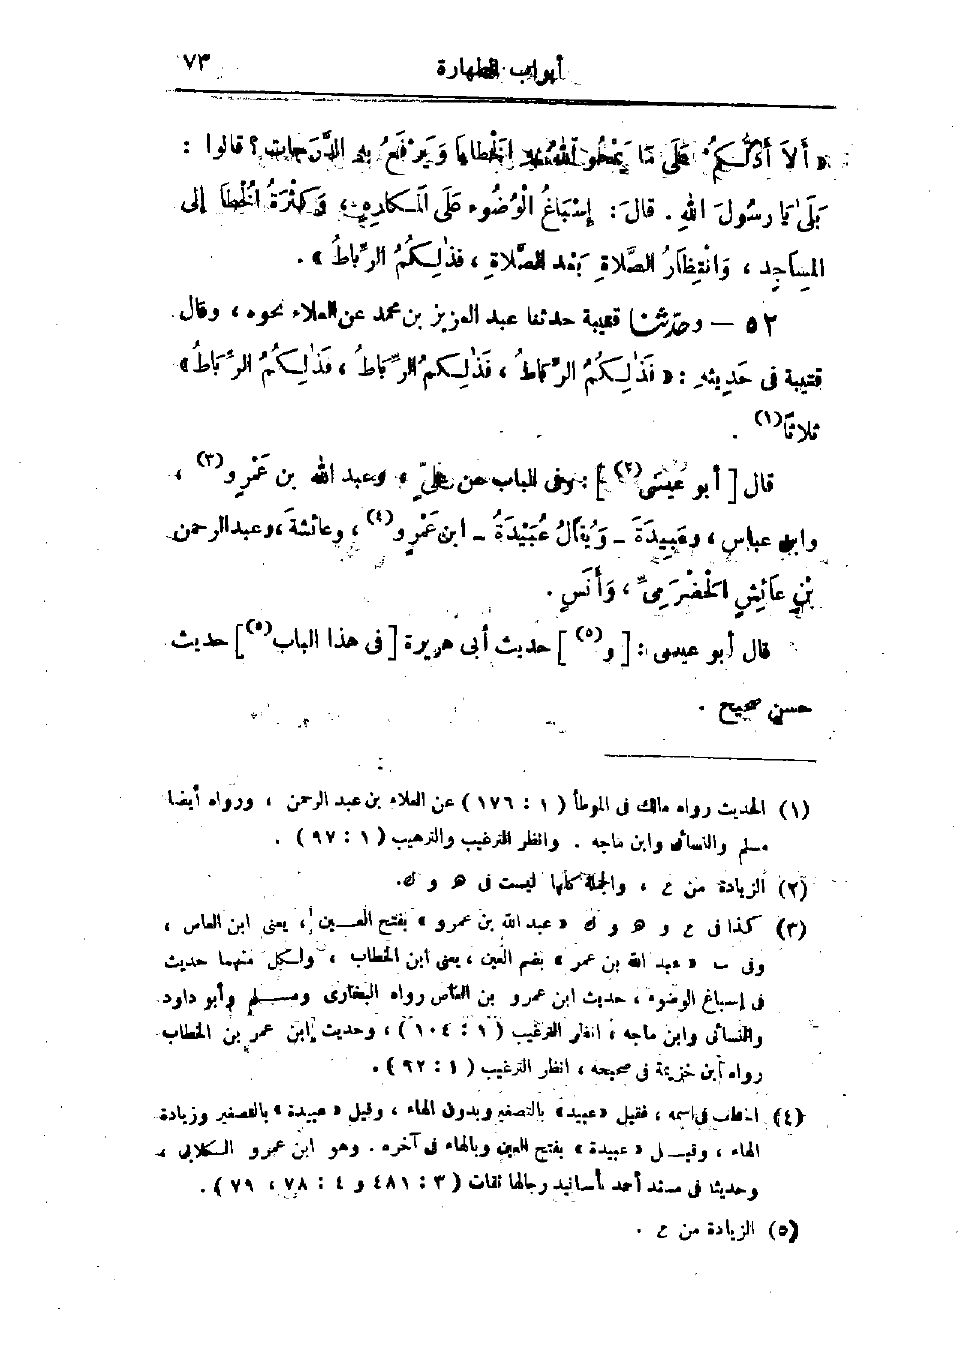 أبواب الطهارة ٧٣
« أَلاَ أَدُلُّكُمْ عَلَى مَا يَمْحُو اللهُ بِهِ الْخَطَايَا وَيَرْفَعُ بِهِ الدَّرَجَاتِ ؟ قالوا :
بَلَى يَا رسُولَ اللهِ . قالَ : إِسْبَاغُ الْوُضُوءِ عَلَى الْمَكَارِهِ ، وَكَثْرَةُ الْخُطَا إلى
المساجِدِ ، وَانْتِظَارُ الصَّلاةِ بَعْدَ الصَّلاةِ ، فَذٰلِكُمُ الرِّبَاطُ » .
٥٢ — وحدثنا قتيبة حدثنا عبد العزيز بن محمد عن العلاء نحوه ، وقال
قتيبة فى حَدِيثِهِ : « فَذٰلِكُمُ الرِّبَاطُ ، فَذٰلِكُمُ الرِّبَاطُ ، فَذٰلِكُمُ الرِّبَاطُ »
ثلاثًا (١) .
قال [ أبو عيسَى (٢) ] : وفى الباب عن عَلِىٍّ ، وعبد الله بن عَمْرٍو (٣) ،
وابن عباسٍ ، وعَبِيدَةَ – وَيُقَالُ عُبَيْدَةُ – ابن عَمْرٍو (٤) ، وعائشةَ ، وعبد الرحمن
بْنِ عَائِشٍ الْحَضْرَمِىِّ ، وَأَنَسٍ .
قال أبو عيسى : [ و (٥) ] حديث أبى هريرة [ فى هذا الباب (٥) ] حديث
حسن صحيح .
(١) الحديث رواه مالك فى الموطأ ( ١ : ١٧٦ ) عن العلاء بن عبد الرحمن ، ورواه أيضا
مسلم والنسائى وابن ماجه . وانظر الترغيب والترهيب ( ١ : ٩٧ ) .
(٢) الزيادة من ع ، والجملة كلها ليست فى هـ و ك.
(٣) كذا فى ع و هـ و ك « عبد الله بن عمرو » بفتح العين ، يعنى ابن العاص ،
وفى ب « عبد الله بن عمر » بضم العين ، يعنى ابن الخطاب ، ولكل منهما حديث
فى إسباغ الوضوء ، حديث ابن عمرو بن العاص رواه البخارى ومسلم وأبو داود
والنسائى وابن ماجه ، انظر الترغيب ( ١ : ١٠٤ ) ، وحديث ابن عمر بن الخطاب
رواه ابن خزيمة فى صحيحه ، انظر الترغيب ( ١ : ٩٢ ) .
(٤) اختلف فى اسمه ، فقيل « عبيد » بالتصغير وبدون الهاء ، وقيل « عبيدة » بالتصغير وزيادة
الهاء ، وقيل « عبيدة » بفتح العين وبالهاء فى آخره . وهو ابن عمرو الكلابى ،
وحديثه فى مسند أحمد بأسانيد رجالها ثقات ( ٣ : ٤٨١ و ٤ : ٧٨ ، ٧٩ ) .
(٥) الزيادة من ع .